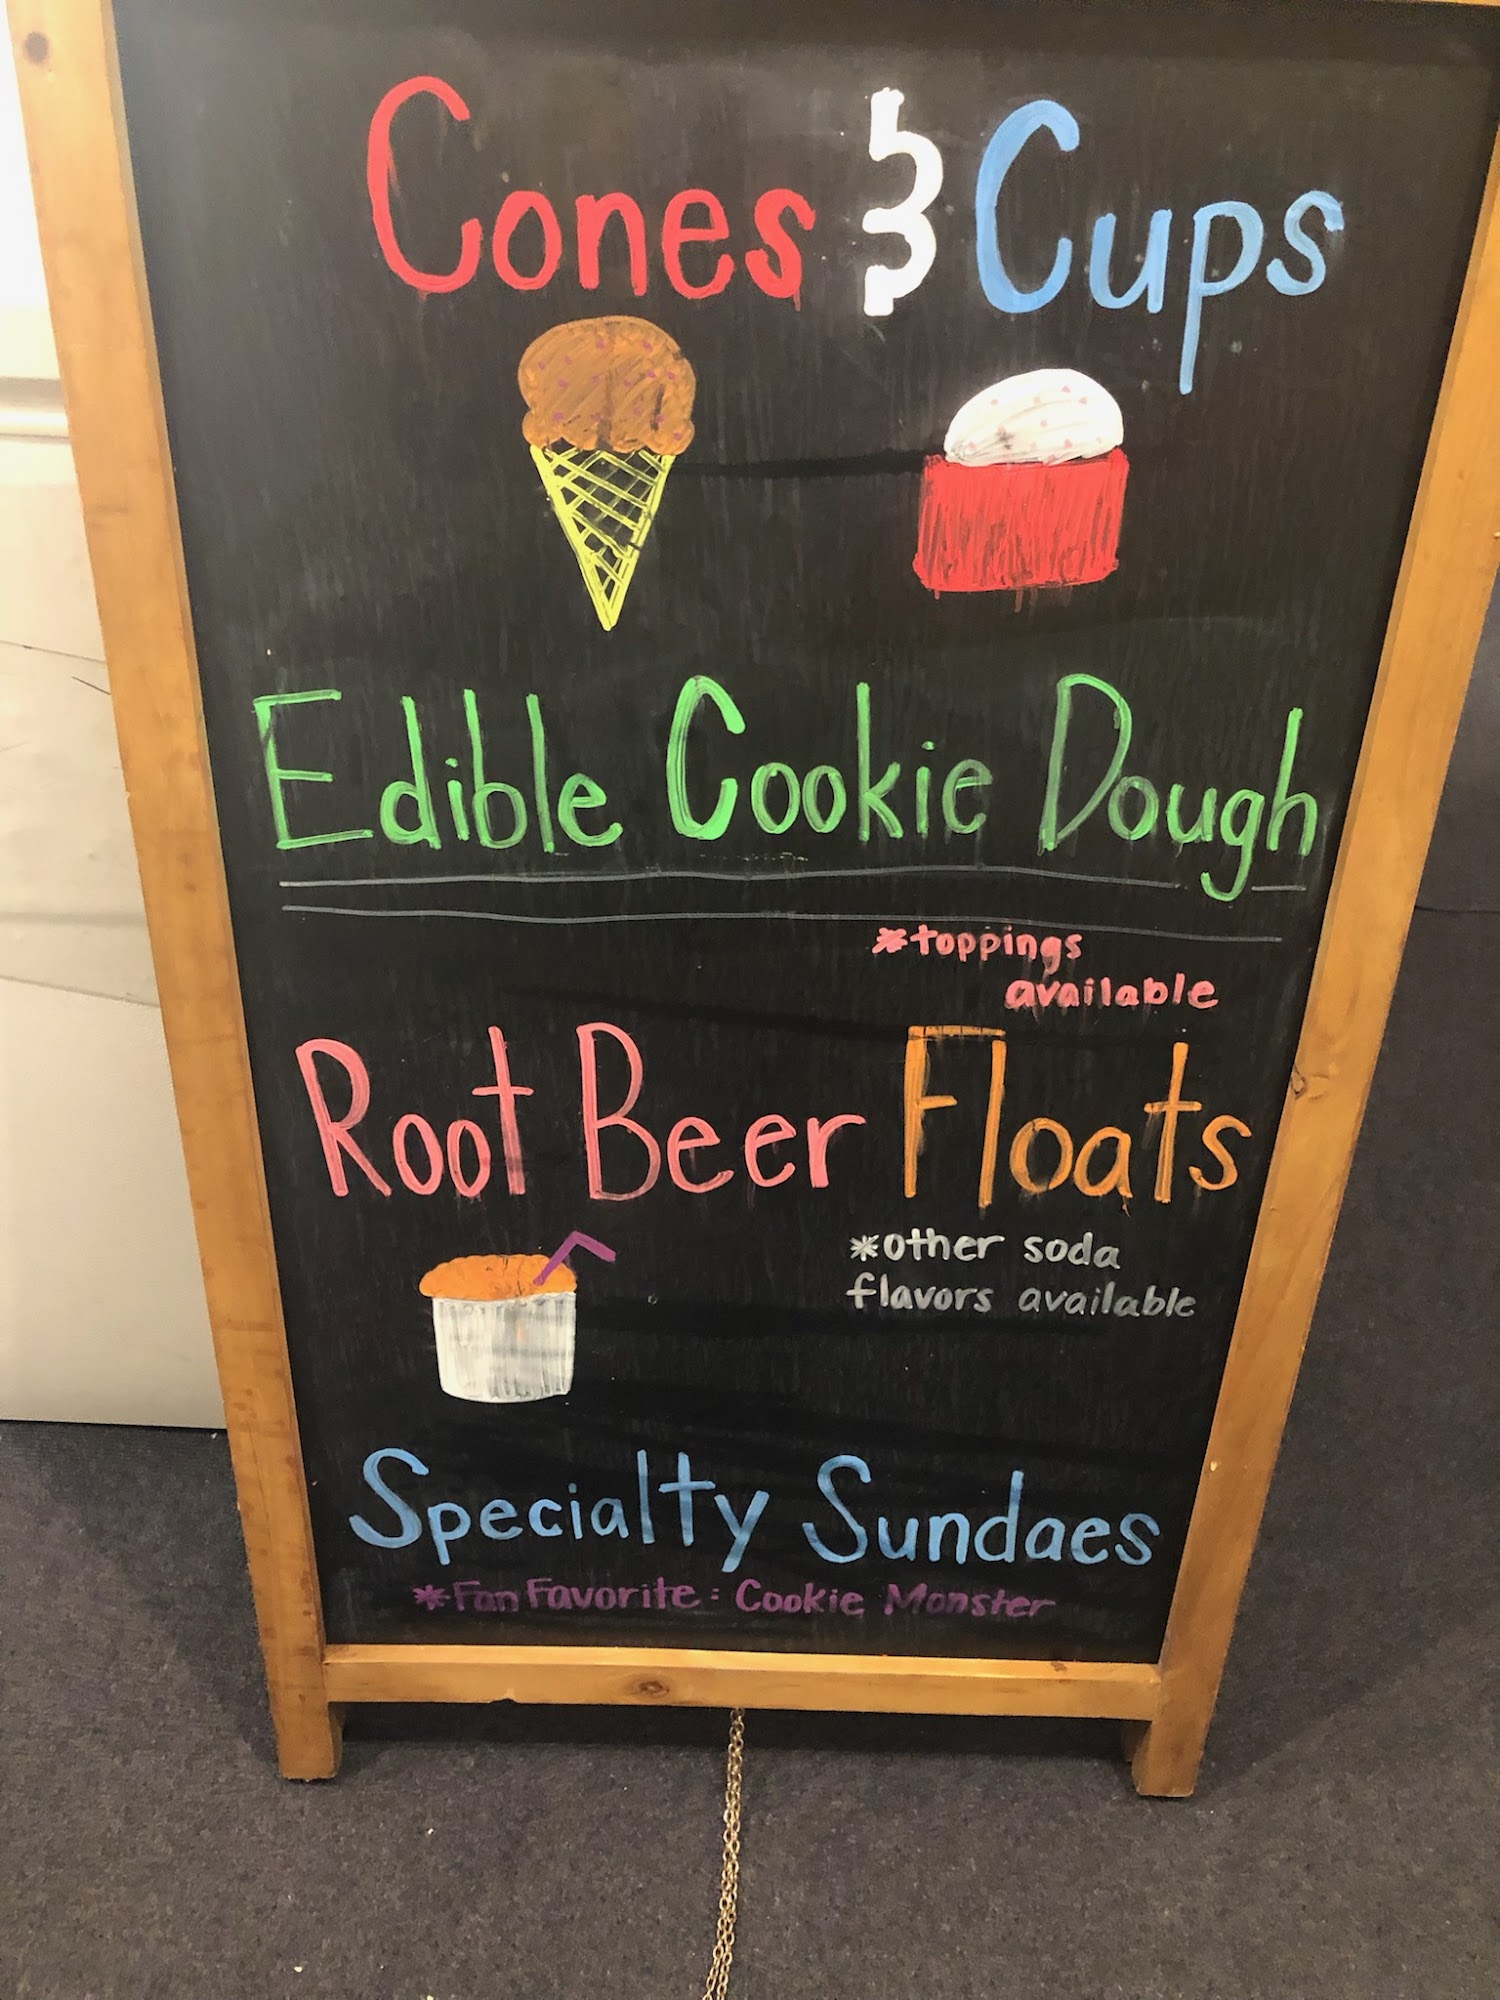 Cones & Cups
Edible Cookie Dough
*toppings
available
Root Beer Floats
*other soda
flavors available
Specialty Sundaes
*Fan Favorite: Cookie Monster